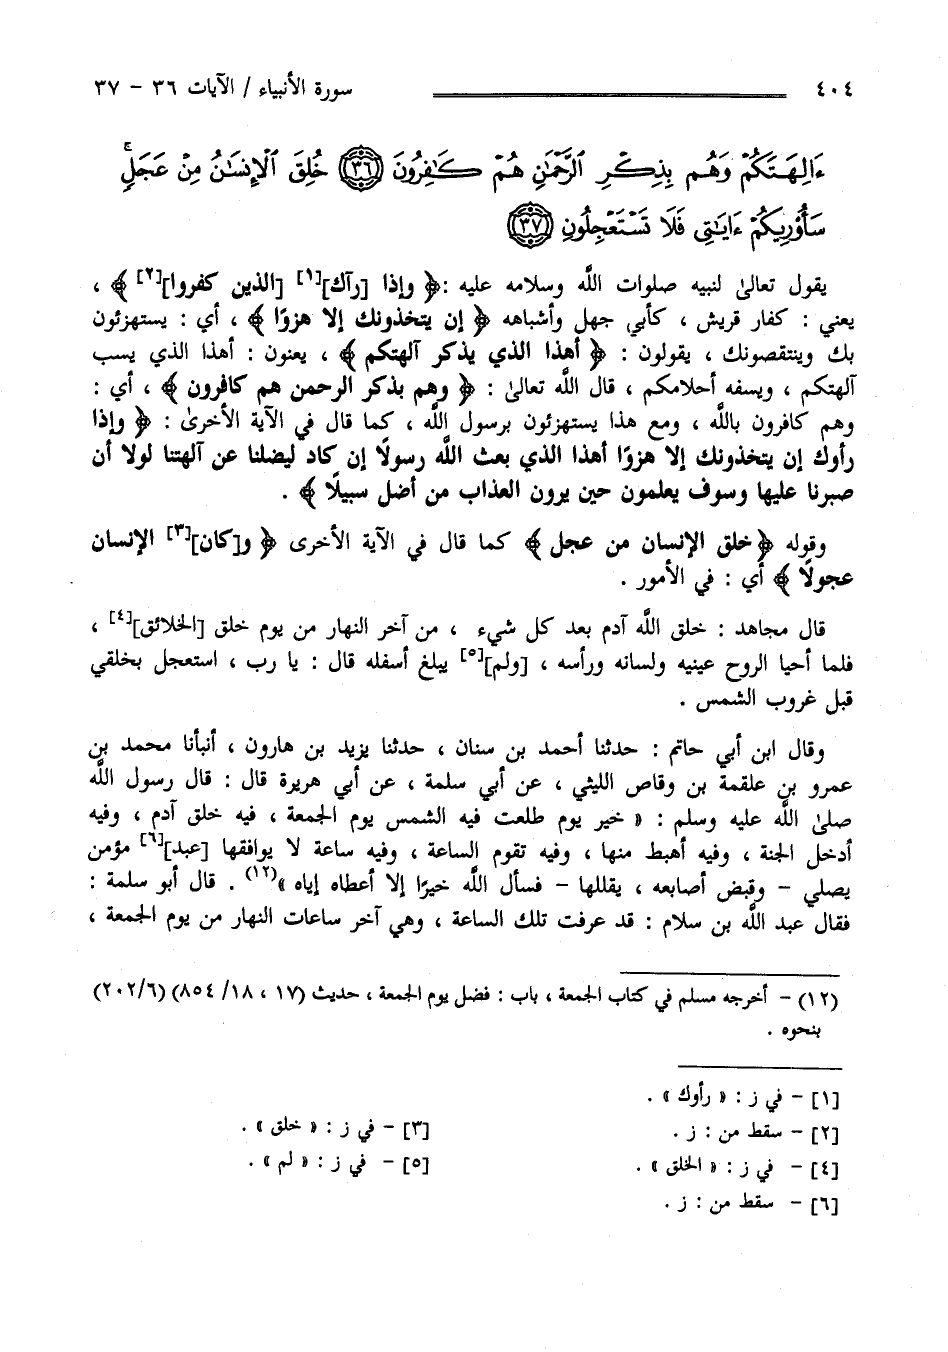 ٤٠٤ سورة الأنبياء / الآيات ٣٦ - ٣٧
ءَالِهَتَكُمْ وَهُم بِذِكْرِ ٱلرَّحْمَٰنِ هُمْ كَٰفِرُونَ ٣٦ خُلِقَ ٱلْإِنسَٰنُ مِنْ عَجَلٍۚ
سَأُو۟رِيكُمْ ءَايَٰتِى فَلَا تَسْتَعْجِلُونِ ٣٧
يقول تعالىٰ لنبيه صلوات اللَّه وسلامه عليه :﴿ وإذا [رآك][١] [الذين كفروا][٢] ﴾ ،
يعني : كفار قريش ، كأبي جهل وأشباهه ﴿ إن يتخذونك إلا هزوًا ﴾ ، أي : يستهزئون
بك وينتقصونك ، يقولون : ﴿ أهذا الذي يذكر آلهتكم ﴾ ، يعنون : أهذا الذي يسب
آلهتكم ، ويسفه أحلامكم ، قال اللَّه تعالىٰ : ﴿ وهم بذكر الرحمن هم كافرون ﴾ ، أي :
وهم كافرون باللَّه ، ومع هذا يستهزئون برسول اللَّه ، كما قال في الآية الأخرىٰ : ﴿ وإذا
رأوك إن يتخذونك إلا هزوًا أهذا الذي بعث اللَّه رسولًا إن كاد ليضلنا عن آلهتنا لولا أن
صبرنا عليها وسوف يعلمون حين يرون العذاب من أضل سبيلًا ﴾ .
وقوله ﴿خلق الإنسان من عجل ﴾ كما قال في الآية الأخرى ﴿ و[كان][٣] الإنسان
عجولًا ﴾ أي : في الأمور .
قال مجاهد : خلق اللَّه آدم بعد كل شيء ، من آخر النهار من يوم خلق [الخلائق][٤] ،
فلما أحيا الروح عينيه ولسانه ورأسه ، [ولم][٥] يبلغ أسفله قال : يا رب ، استعجل بخلقي
قبل غروب الشمس .
وقال ابن أبي حاتم : حدثنا أحمد بن سنان ، حدثنا يزيد بن هارون ، أنبأنا محمد بن
عمرو بن علقمة بن وقاص الليثي ، عن أبي سلمة ، عن أبي هريرة قال : قال رسول اللَّه
صلىٰ اللَّه عليه وسلم : « خير يوم طلعت فيه الشمس يوم الجمعة ، فيه خلق آدم ، وفيه
أدخل الجنة ، وفيه أهبط منها ، وفيه تقوم الساعة ، وفيه ساعة لا يوافقها [عبد][٦] مؤمن
يصلي - وقبض أصابعه ، يقللها - فسأل اللَّه خيرًا إلا أعطاه إياه »(١٢) . قال أبو سلمة :
فقال عبد اللَّه بن سلام : قد عرفت تلك الساعة ، وهي آخر ساعات النهار من يوم الجمعة ،
(١٢) - أخرجه مسلم في كتاب الجمعة ، باب : فضل يوم الجمعة ، حديث (١٧ ، ١٨/ ٨٥٤) (٢٠٢/٦)
بنحوه .
[١] - في ز : « رأوك » .
[٢] - سقط من : ز . [٣] - في ز : « خلق » .
[٤] - في ز : « الخلق » . [٥] - في ز : « لم » .
[٦] - سقط من : ز .